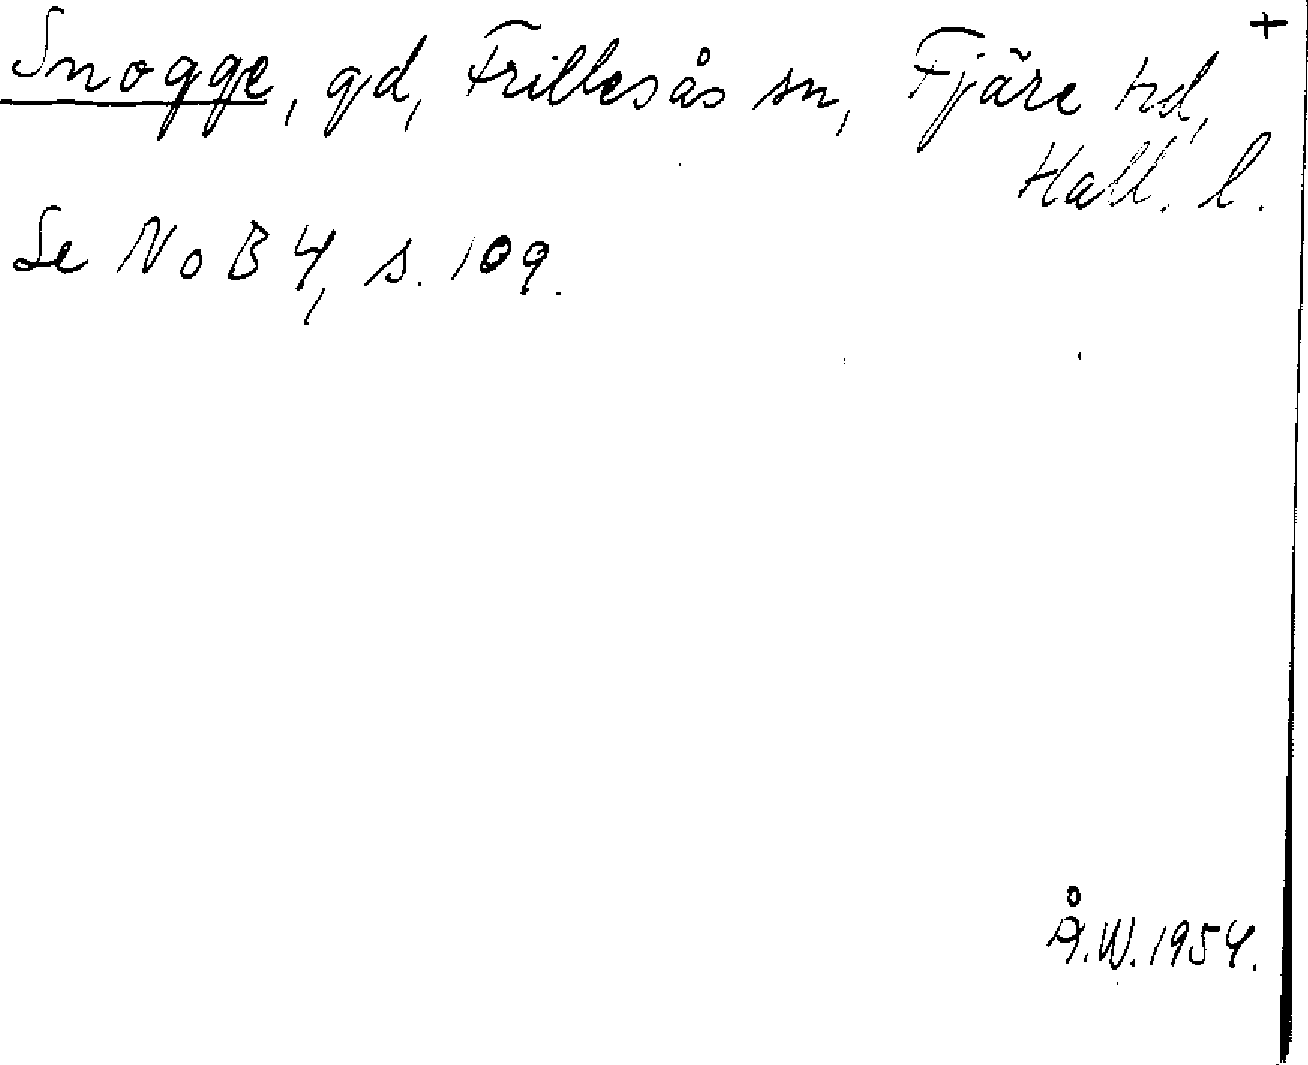 +
Snogge, gd, Frillesås sn, Fjäre hd,
Hall. l.
Se NoB 4, s. 109.
Å.W. 1954.